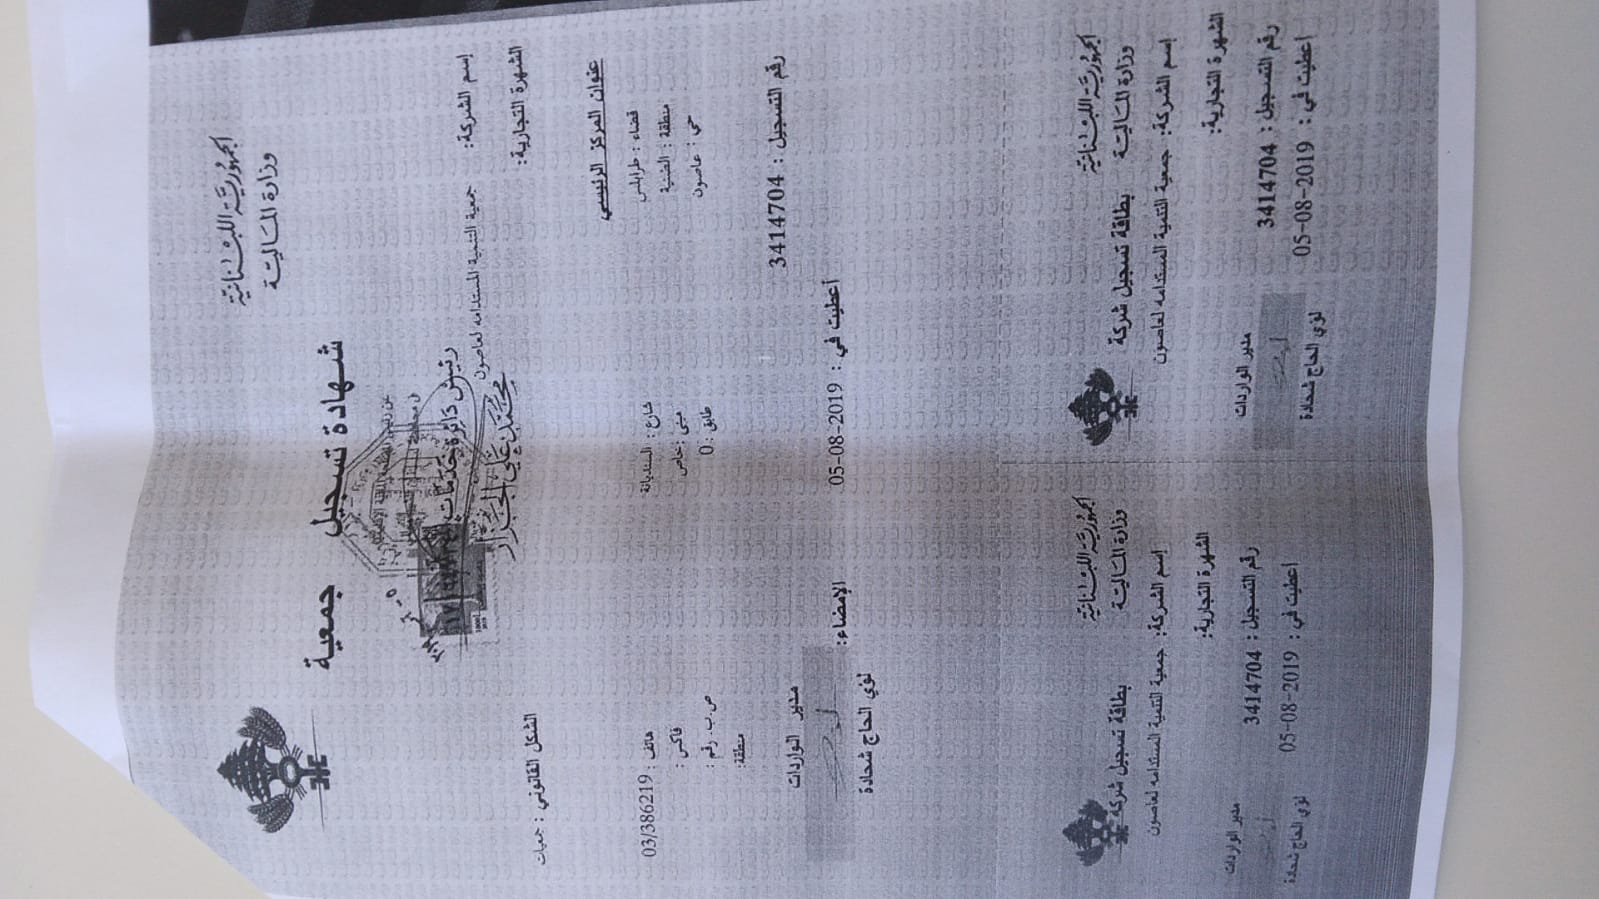 الجمهورية اللبنانية
وزارة المالية
شهادة تسجيل جمعية
إسم الشركة: جمعية التنمية المستدامه لعاصون
رئيس دائرة خدمات
محمد علي الجزار
الشهرة التجارية:
الشكل القانوني : جمعيات
عنوان المركز الرئيسي
قضاء : طرابلس شارع : السنديانة هاتف : 03/386219
منطقة : الضنية مبنى : خاص فاكس :
حي : عاصون طابق : 0 ص.ب. رقم :
منطقة:
رقم التسجيل : 3414704
مدير الواردات
أعطيت في : 05-08-2019 الإمضاء:
لؤي الحاج شحادة
الجمهورية اللبنانية
وزارة المالية بطاقة تسجيل شركة
إسم الشركة: جمعية التنمية المستدامه لعاصون
الشهرة التجارية:
مدير الواردات
رقم التسجيل : 3414704
أعطيت في : 05-08-2019
لؤي الحاج شحادة
الجمهورية اللبنانية
وزارة المالية بطاقة تسجيل شركة
إسم الشركة: جمعية التنمية المستدامه لعاصون
الشهرة التجارية:
مدير الواردات
رقم التسجيل : 3414704
أعطيت في : 05-08-2019
لؤي الحاج شحادة